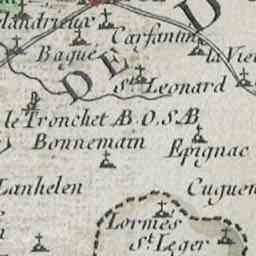 landrieux
Carfantin
Bagué
D
la Vie
DE
St Leonard
le Tronchet Æ.O.SÆB
Bonnemain
Epignac
Lanhelen
Cuguen
Lormés
St Leger